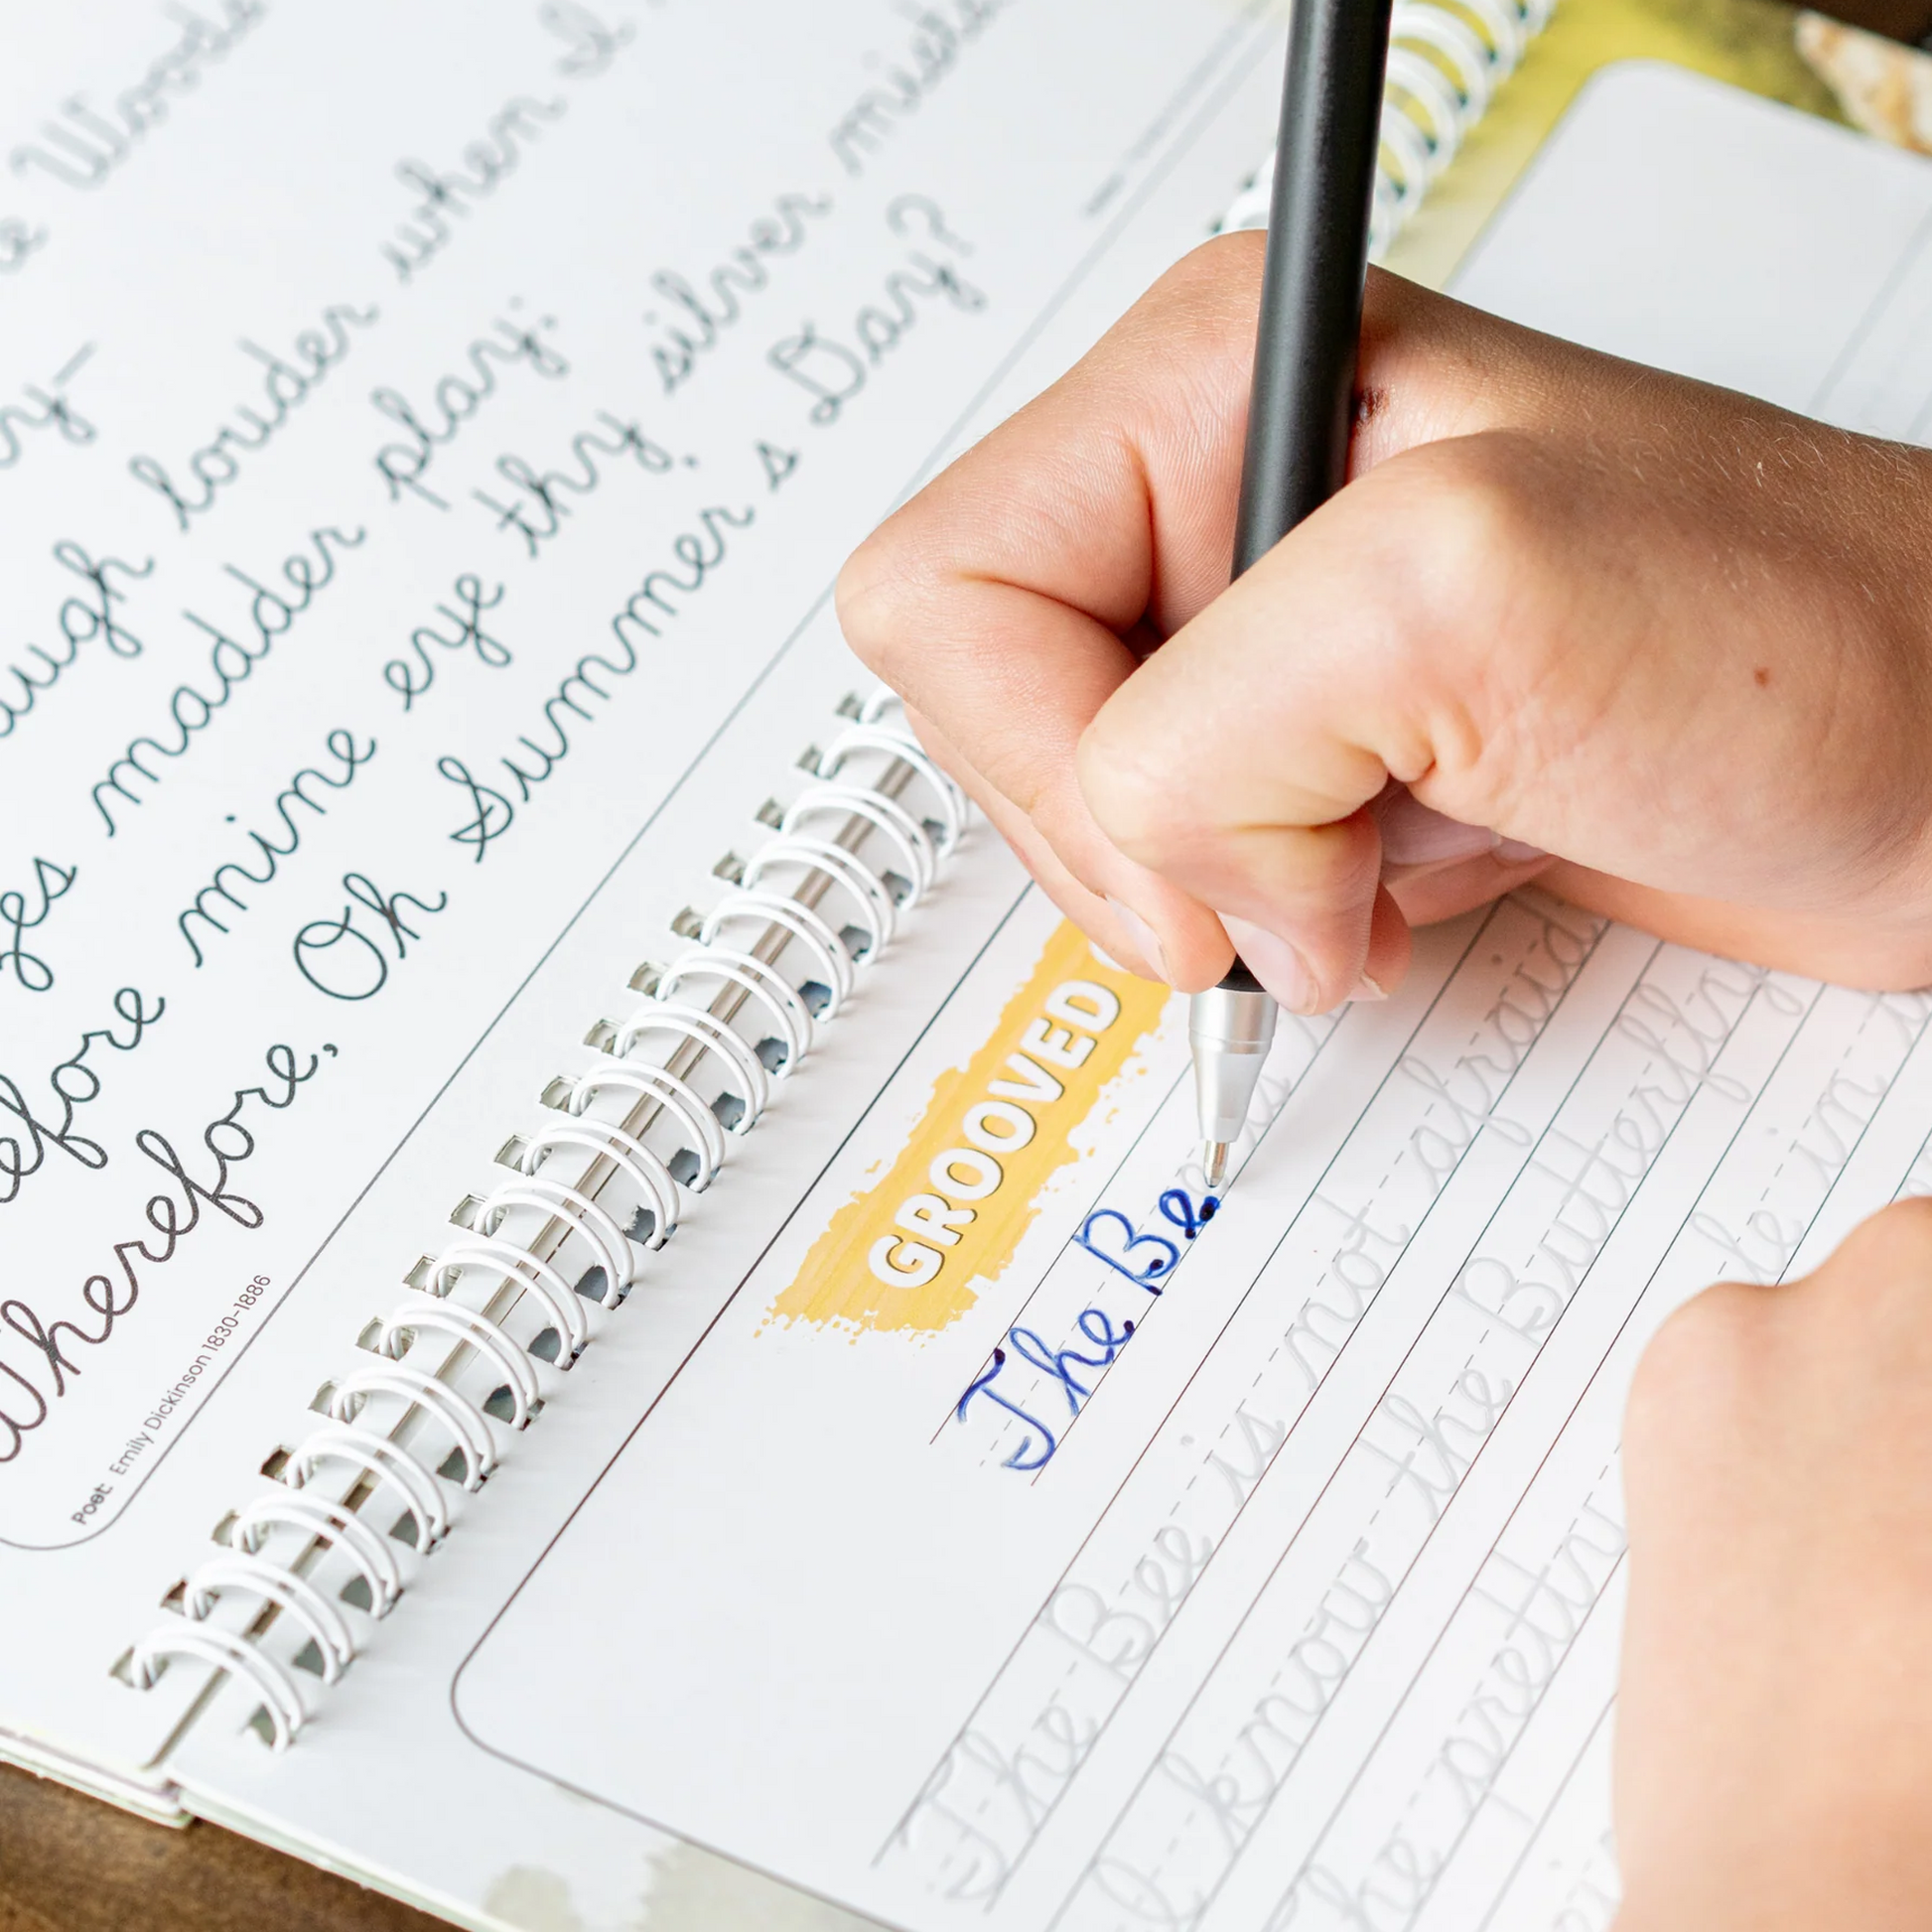 e Woods
ry—
augh louder when I
zes madder play:
efore mine eye thy silver mists
Wherefore, Oh Summer s Day?
Poet: Emily Dickinson 1830-1886
GROOVED
The Be is
The Bee is not afraid
I know the Butterfly
The pretty
de in